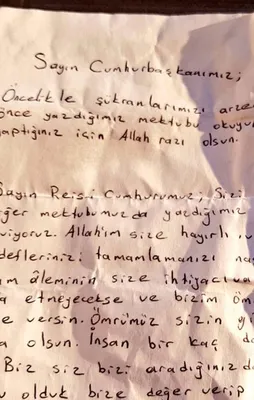 Sayın Cumhurbaşkanımız;
Öncelikle şükranlarımızı arze
önce yazdığımız mektubu okuyu
yaptığınız için Allah razı olsun.
Sayın Reis-i Cumhurumuz; Sizi
ğer mektubumuzda yazdığımız
viyoruz. Allah'ım size hayırlı u
deflerinizi tamamlamanızı na
am âleminin size ihtiyacı va
a etmeyecekse ve bizim öm
e versin. Ömrümüz sizin yo
a olsun. İnsan bir kaç de
Biz siz bizi aradığınızda
u olduk bize değer verip